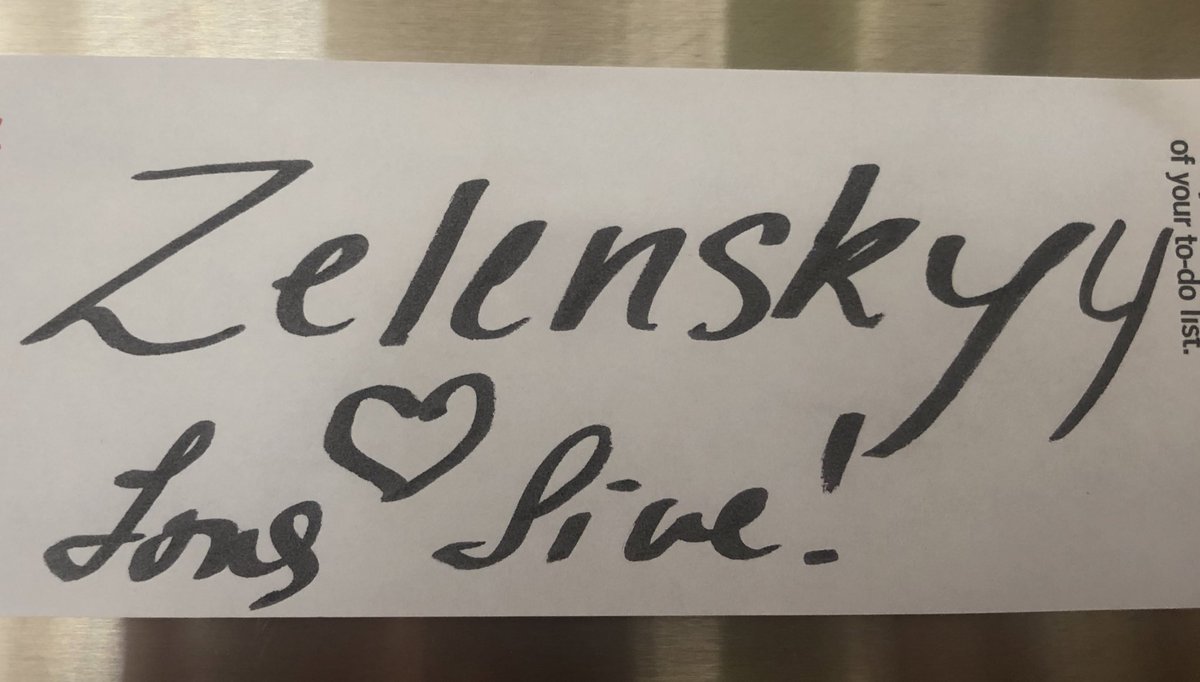 Zelenskyy
Long live!
of your to-do list.